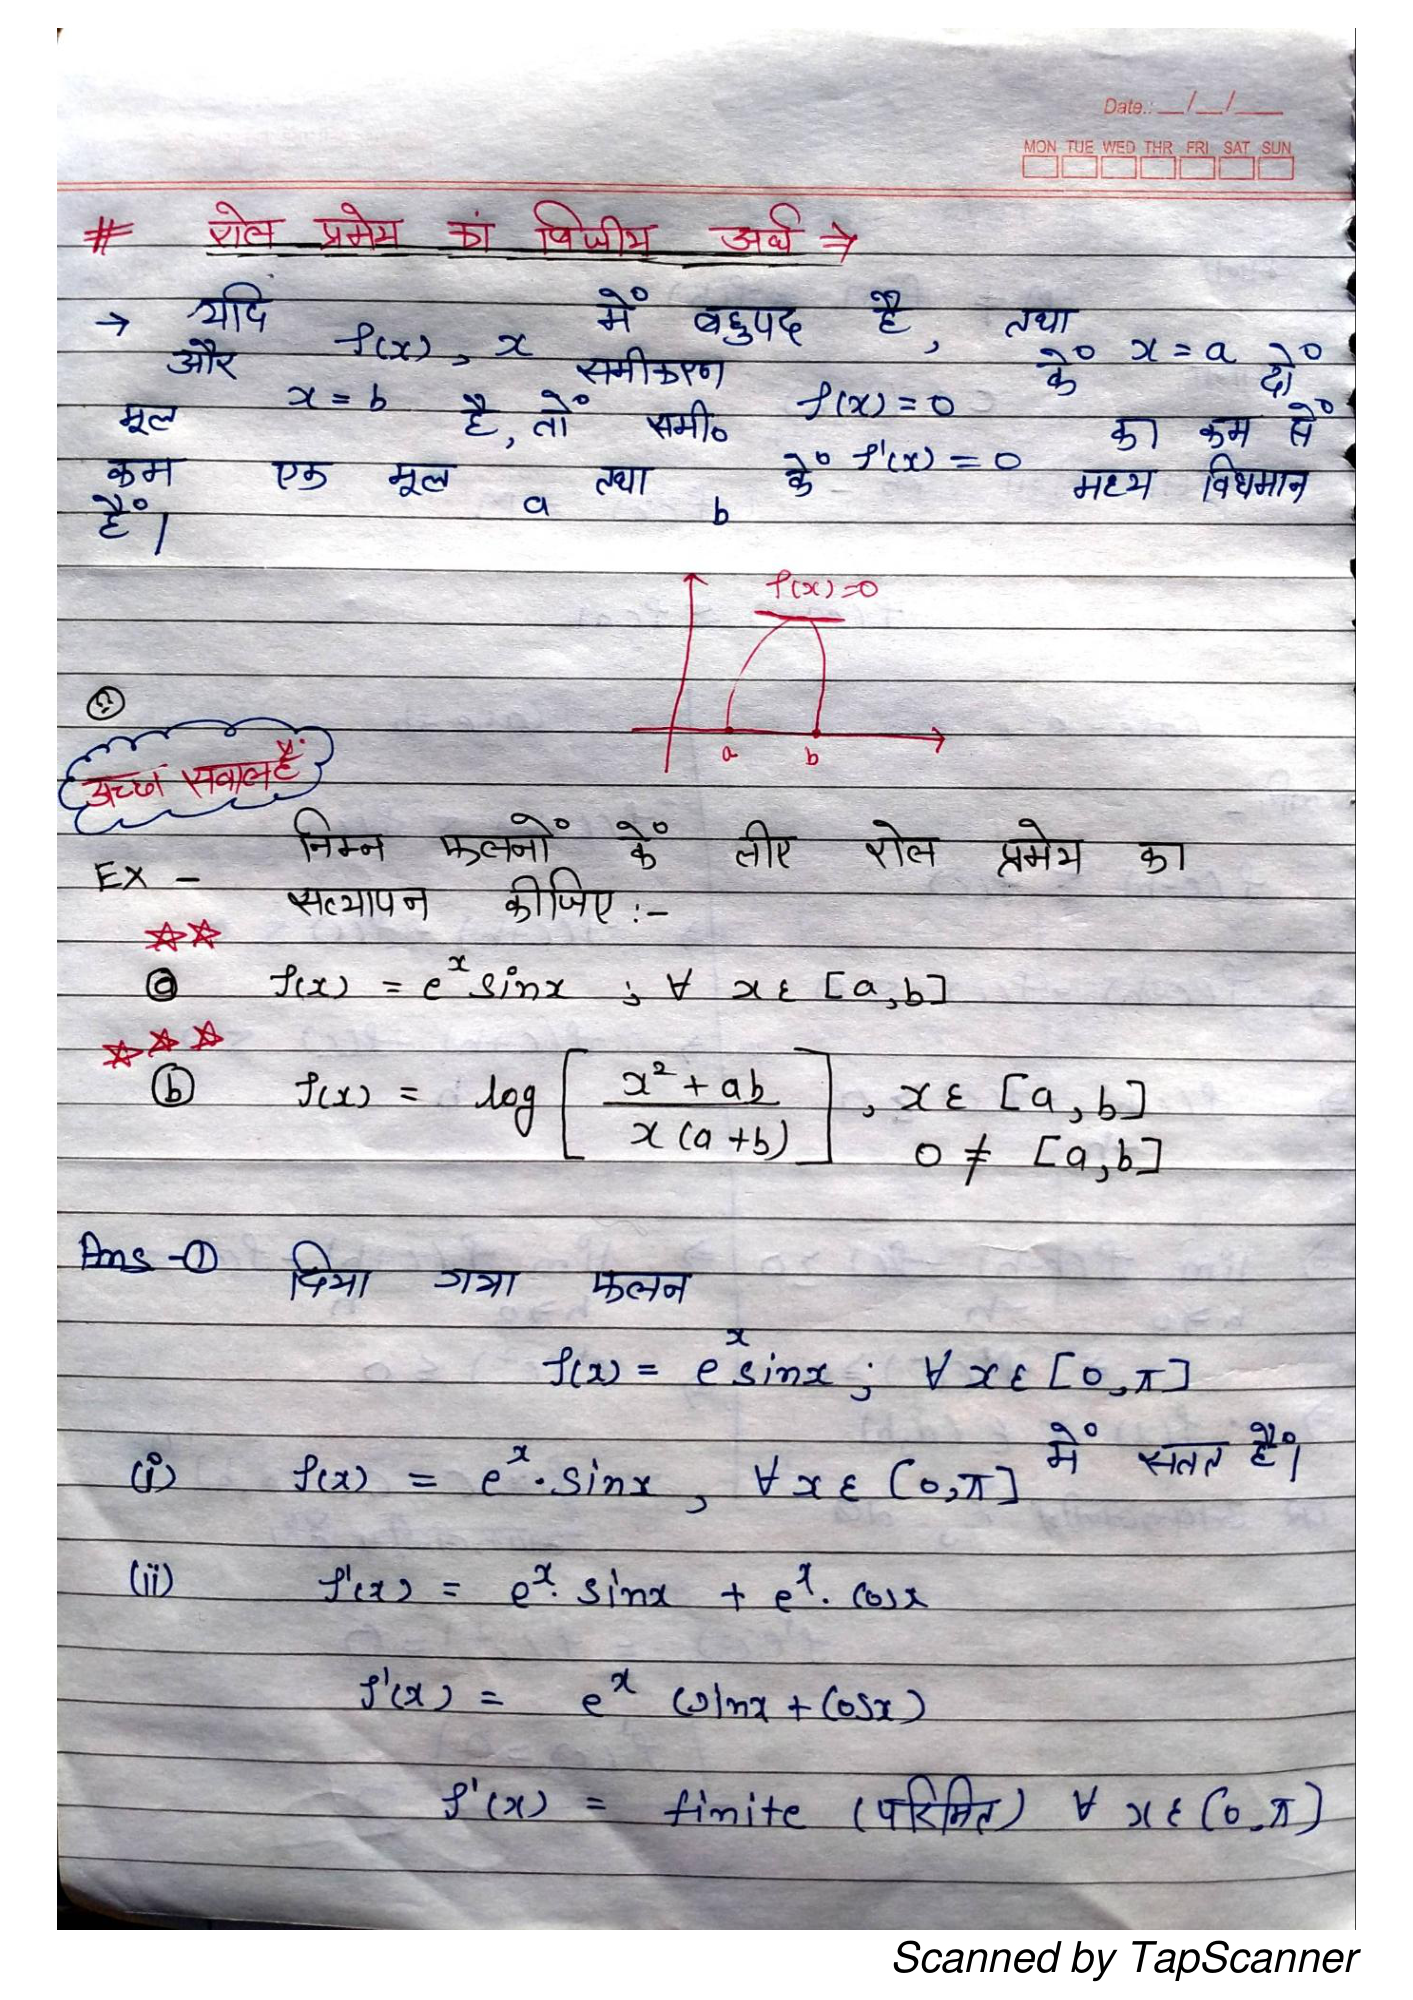 Date.: __/__/___
MON TUE WED THR FRI SAT SUN
# रोल प्रमेय का बिजीय अर्थ ⇒
→ यदि f(x), x में बहुपद है, तथा x = a
और x = b समीकरण f(x) = 0 के दो
मूल है, तो समी० f'(x) = 0 का कम से
कम एक मूल a तथा b के मध्य विधमान
है।
f(x)=0
a b
अच्छा सवाल है
Ex - निम्न फलनों के लीए रोल प्रमेय का
सत्यापन कीजिए :-
(a) f(x) = e^x sinx ; ∀ x ε [a,b]
(b) f(x) = log [ (x² + ab) / (x (a+b)) ] , x ε [a, b]
0 ≠ [a,b]
Ans -① दिया गया फलन
f(x) = e^x sinx ; ∀ x ε [0,π]
(i) f(x) = e^x . sinx , ∀ x ε [0,π] में सतत है।
(ii) f'(x) = e^x. sinx + e^x. cosx
f'(x) = e^x (sinx + cosx)
f'(x) = finite (परिमित) ∀ x ε (0,π)
Scanned by TapScanner